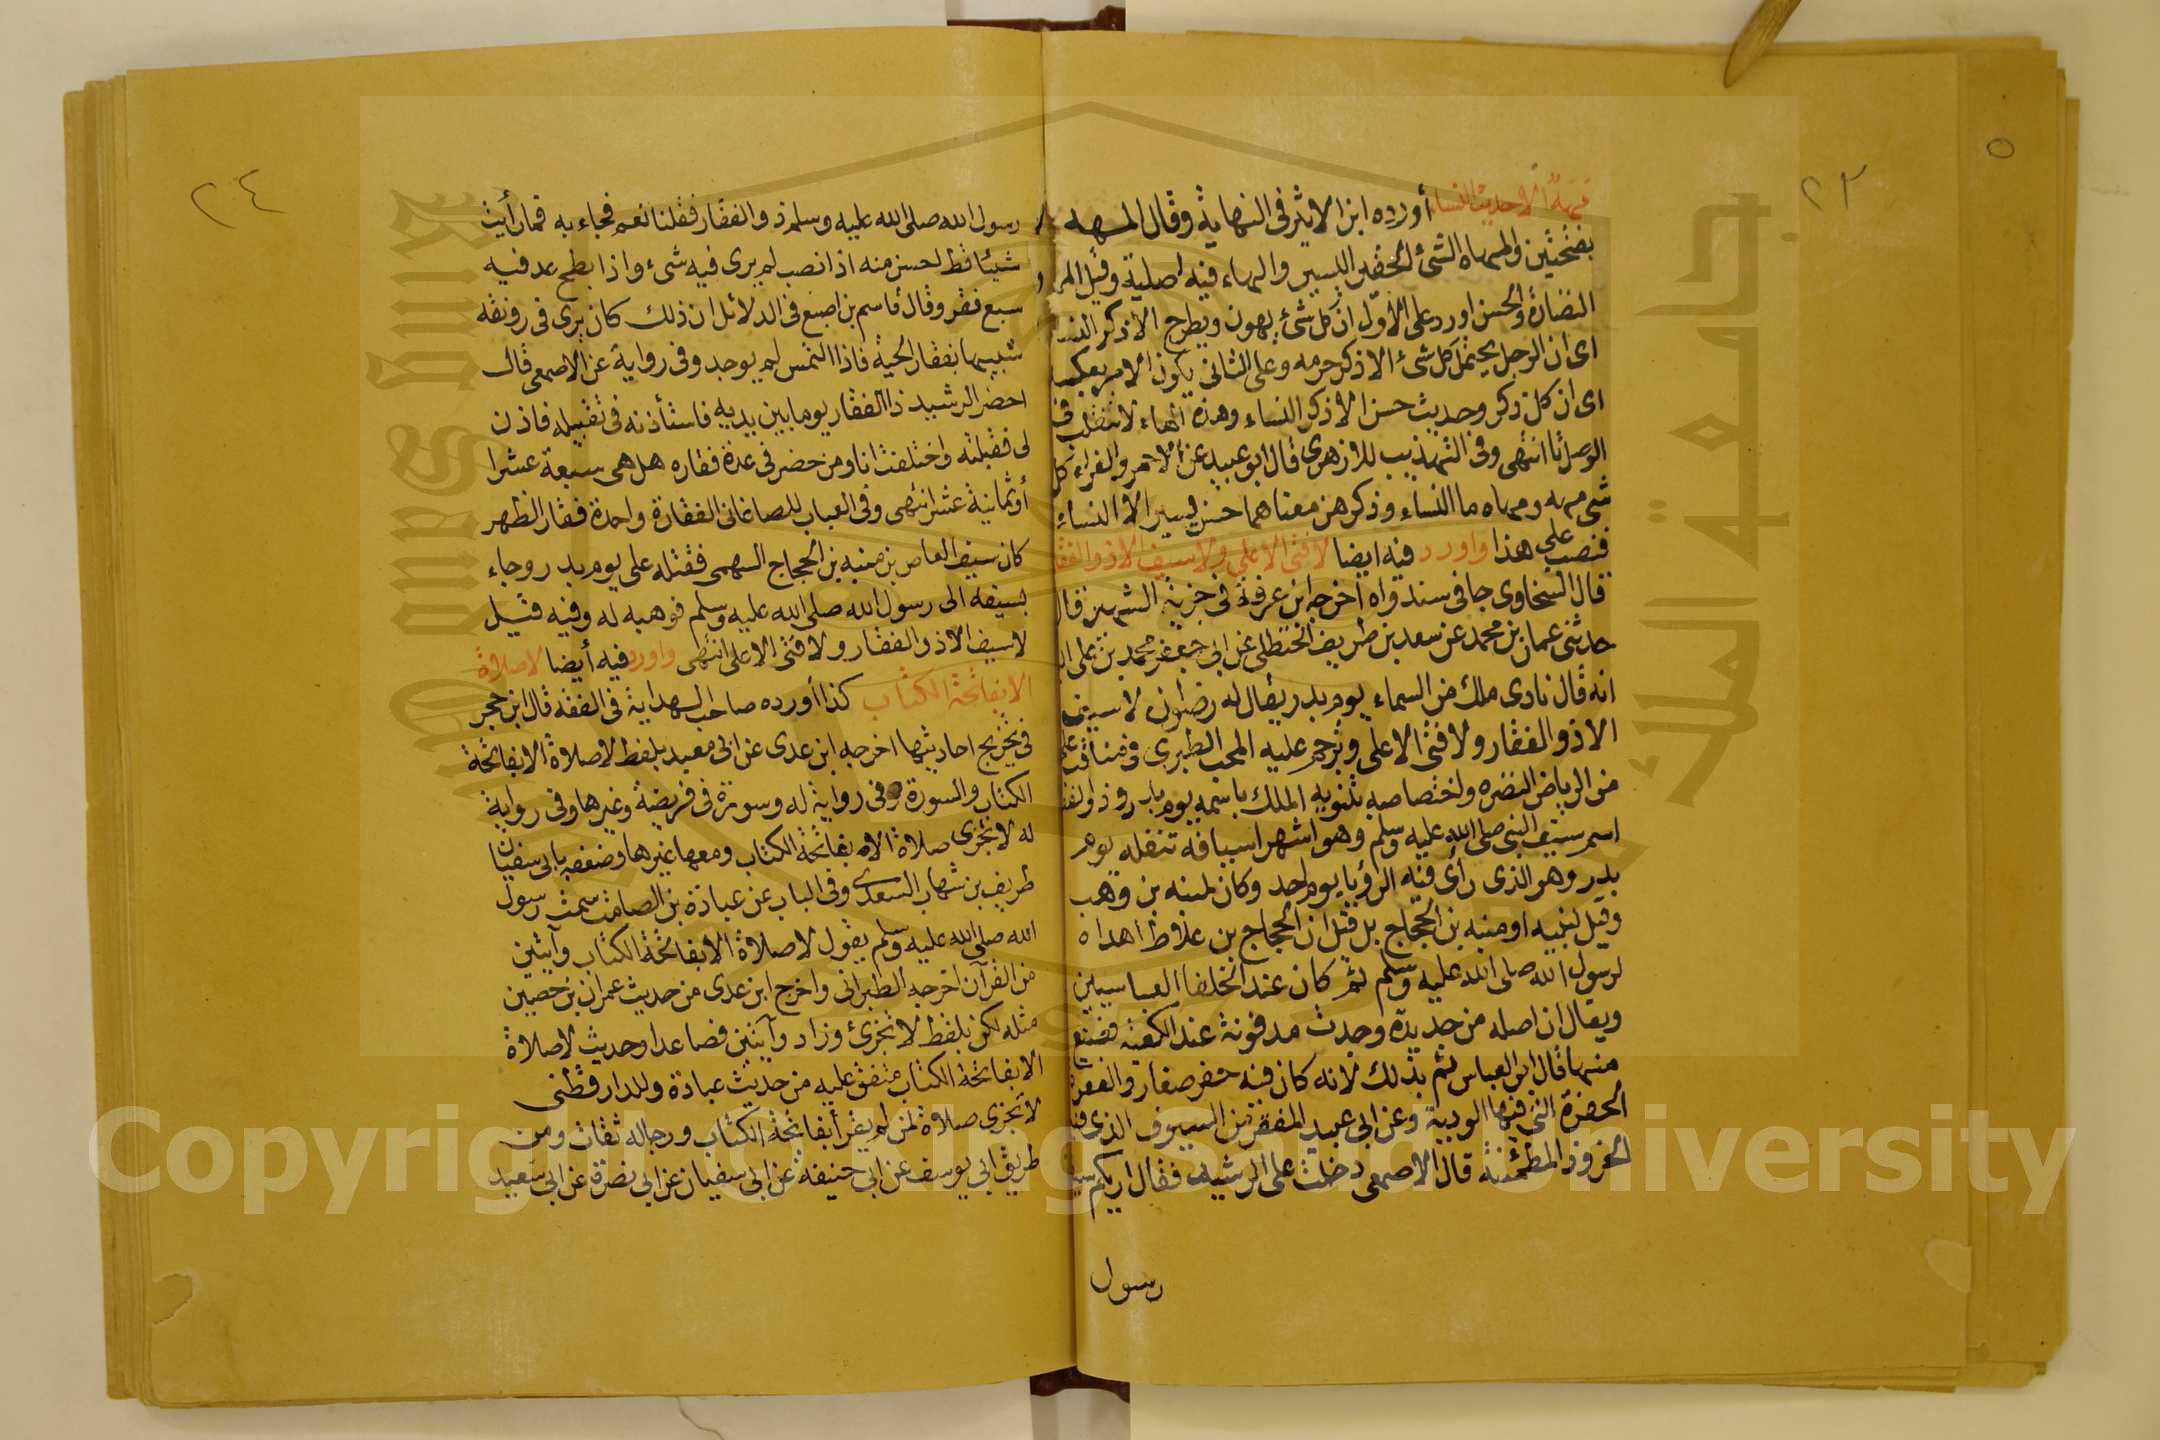 ٢٣
مَهَهٌ الا حديث النساء أورده ابن الاثير في النهاية وقال المهه
بفتحتين والمهاه الشئ الحقير اليسير والهاء فيه اصلية وقيل المهاه
النضارة والحسن اورد على الاول ان كل شئ يهون ويطرح الا ذكر النساء
اى ان الرجل يحتمل كل شئ الا ذكر حرمه وعلى الثانى يكون الامر بعكسه
اى ان كل ذكر وحديث حسن الا ذكر النساء وهذه الهاء لا تنقلب في
الوصل تا انتهى وفى التهذيب للازهرى قال ابو عبيد عن الاحمر والفراء كل
شئ مهه ومهاه ما النساء وذكرهن معناهما حسن يسير الا النساء
فنصب على هذا واورد فيه ايضا لا فتى الا على ولا سيف الا ذو الفقار
قال السخاوى جا فى سند واه أخرجه ابن عرفة فى جزئه الشهير قال
حدثنى عمار بن محمد عن سعد بن طريف الحنظلى عن ابى جعفر محمد بن على
انه قال نادى ملك من السماء يوم بدر يقال له رضوان لا سيف
الا ذو الفقار ولا فتى الا على وترجم عليه المحب الطبرى فى مناقب على
من الرياض النضره واختصاصه بتنويه الملك باسمه يوم بدر وذو الفقار
اسم سيف النبى صلى الله عليه وسلم وهو اشهر اسيافه تنفله يوم
بدر وهو الذى رأى فيه الرؤيا يوم احد وكان لمنبه بن وهب
وقيل لنبيه او منبه بن الحجاج بل قيل ان الحجاج بن علاط اهداه
لرسول الله صلى الله عليه وسلم ثم كان عند الخلفا العباسيين
ويقال ان اصله من حديدة وجدت مدفونة عند الكعبة فصنع
منها قال ابو العباس سم بذلك لانه كان فيه حفر صغار والفقرة
الحفرة التى فيها الودية وعن ابى عبيد المفقر من السيوف الذى فيه
الحزوز المطمئنة قال الاصمعى دخلت على الرشيد فقال اريكم سيف
رسول
٢٤
رسول الله صلى الله عليه وسلم ذو الفقار فقلنا نعم فجاء به فما رأيت
شيئا قط احسن منه اذا نصب لم يرى فيه شئ واذا بطح عد فيه
سبع فقر وقال قاسم بن اصبغ فى الدلائل ان ذلك كان يرى فى رونقه
شبيها بفقار الحية فاذا التمس لم يوجد وفى رواية عن الاصمعى قال
احضر الرشيد ذا الفقار يوما بين يديه فاستأذنه فى تقبيله فاذن
لى فقبلته واختلفت انا ومن حضر فى عدة فقاره هل هى سبعة عشرا
أو ثمانية عشر انتهى وفى العباب للصاغانى الفقارة واحدة فقار الظهر
كان سيف العاص بن منبه بن الحجاج السهمى فقتله على يوم بدر وجاء
بسيفه الى رسول الله صلى الله عليه وسلم فوهبه له وفيه قيل
لا سيف الا ذو الفقار ولا فتى الا على انتهى واورد فيه أيضا لا صلاة
الا بفاتحة الكتاب كذا أورده صاحب الهداية فى الفقه قال ابن حجر
فى تخريج احاديثها اخرجه ابن عدى عن ابى معبد بلفظ لا صلاة الا بفاتحة
الكتاب والسورة وفى رواية له وسورة فى فريضة وغيرها وفى رواية
له لا تجزى صلاة الا بفاتحة الكتاب ومعها غيرها وضعفه بابى سفيان
طريف بن شهاب السعدى وفى الباب عن عبادة بن الصامت سمعت رسول
الله صلى الله عليه وسلم يقول لا صلاة الا بفاتحة الكتاب وآيتين
من القرآن اخرجه الطبرانى واخرج ابن عدى من حديث عمران بن حصين
مثله لكن بلفظ لا تجزئ وزاد وآيتين فصاعدا وحديث لا صلاة
الا بفاتحة الكتاب متفق عليه من حديث عبادة وللدار قطنى
لا تجزى صلاة لمن لم يقرأ بفاتحة الكتاب ورجاله ثقات ومن
طريق ابى يوسف عن ابى حنيفة عن ابى سفيان عن ابى نضرة عن ابى سعيد
جامعة الملك
King Saud University
Copyright © King Saud University